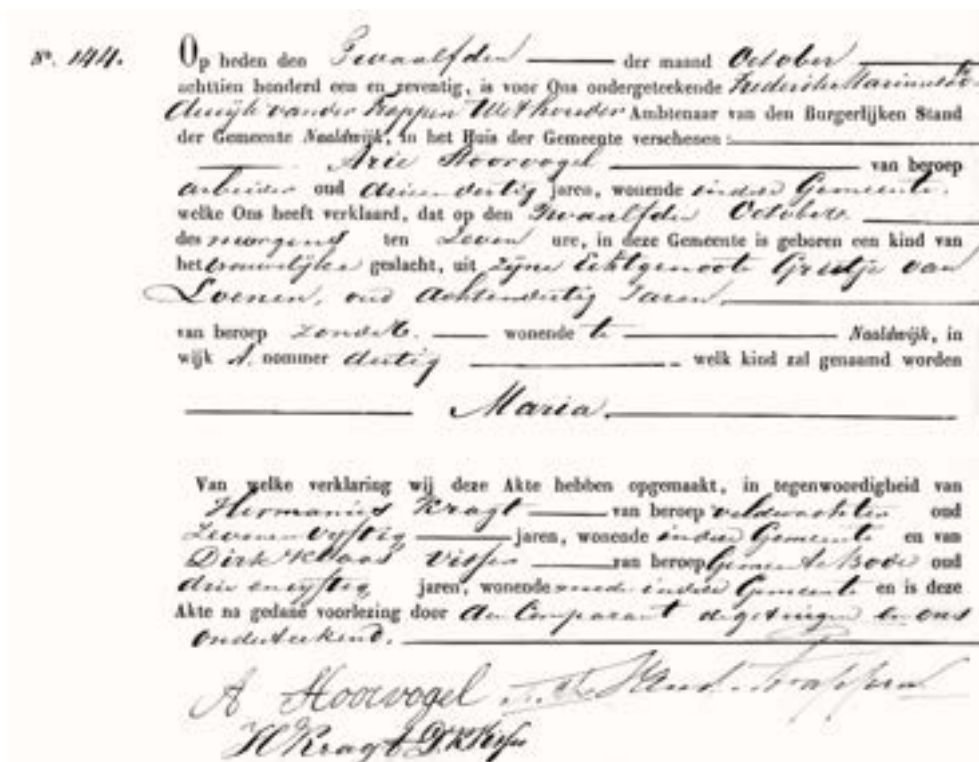 N°. 144. Op heden den Twaalfden der maand October
achttien honderd een en zeventig, is voor Ons ondergeteekende Frederik
van der Wethouder Ambtenaar van den Burgerlijken Stand
der Gemeente Naaldwijk, in het Huis der Gemeente verschenen:
Arie Hoorvogel van beroep
arbeider oud drieendertig jaren, wonende in deze Gemeente.
welke Ons heeft verklaard, dat op den Twaalfden October
des morgens ten Zeven ure, in deze Gemeente is geboren een kind van
het vrouwelijke geslacht, uit zijne Echtgenoote Grietje van
Loenen, oud Achtendertig Jaren,
van beroep zonder. wonende te Naaldwijk, in
wijk A. nommer dertig welk kind zal genaamd worden
Maria.
Van welke verklaring wij deze Akte hebben opgemaakt, in tegenwoordigheid van
Hermanus Kragt van beroep veldwachter oud
Zevenenvyftig jaren, wonende in deze Gemeente en van
Dirk Klaas Visser van beroep Gemeente Bode oud
drie envyftig jaren, wonende mede in deze Gemeente en is deze
Akte na gedane voorlezing door den Comparant de getuigen en ons
onderteekend.
A Hoorvogel
H Kragt D.K. Visser